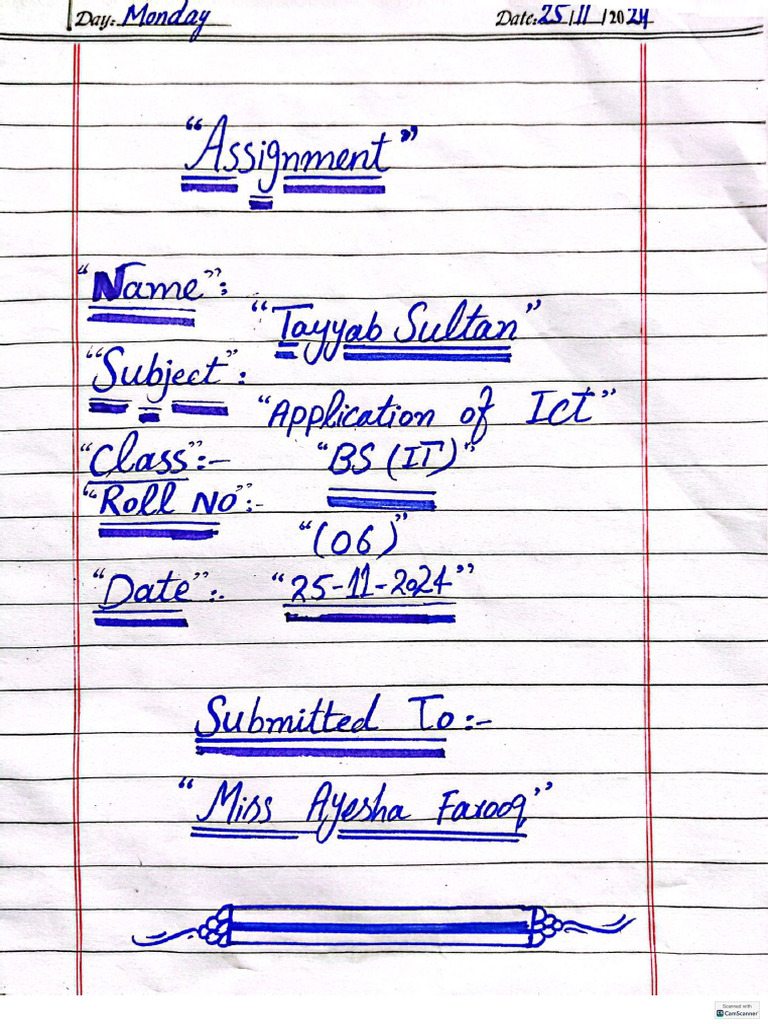 Day: Monday Date: 25/11/2024
"Assignment"
"Name":
"Tayyab Sultan"
"Subject":
"Application of Ict"
"Class":- "BS (IT)"
"Roll No":-
"(06)"
"Date":- "25-11-2024"
Submitted To:-
"Miss Ayesha Farooq"
Scanned with
CamScanner